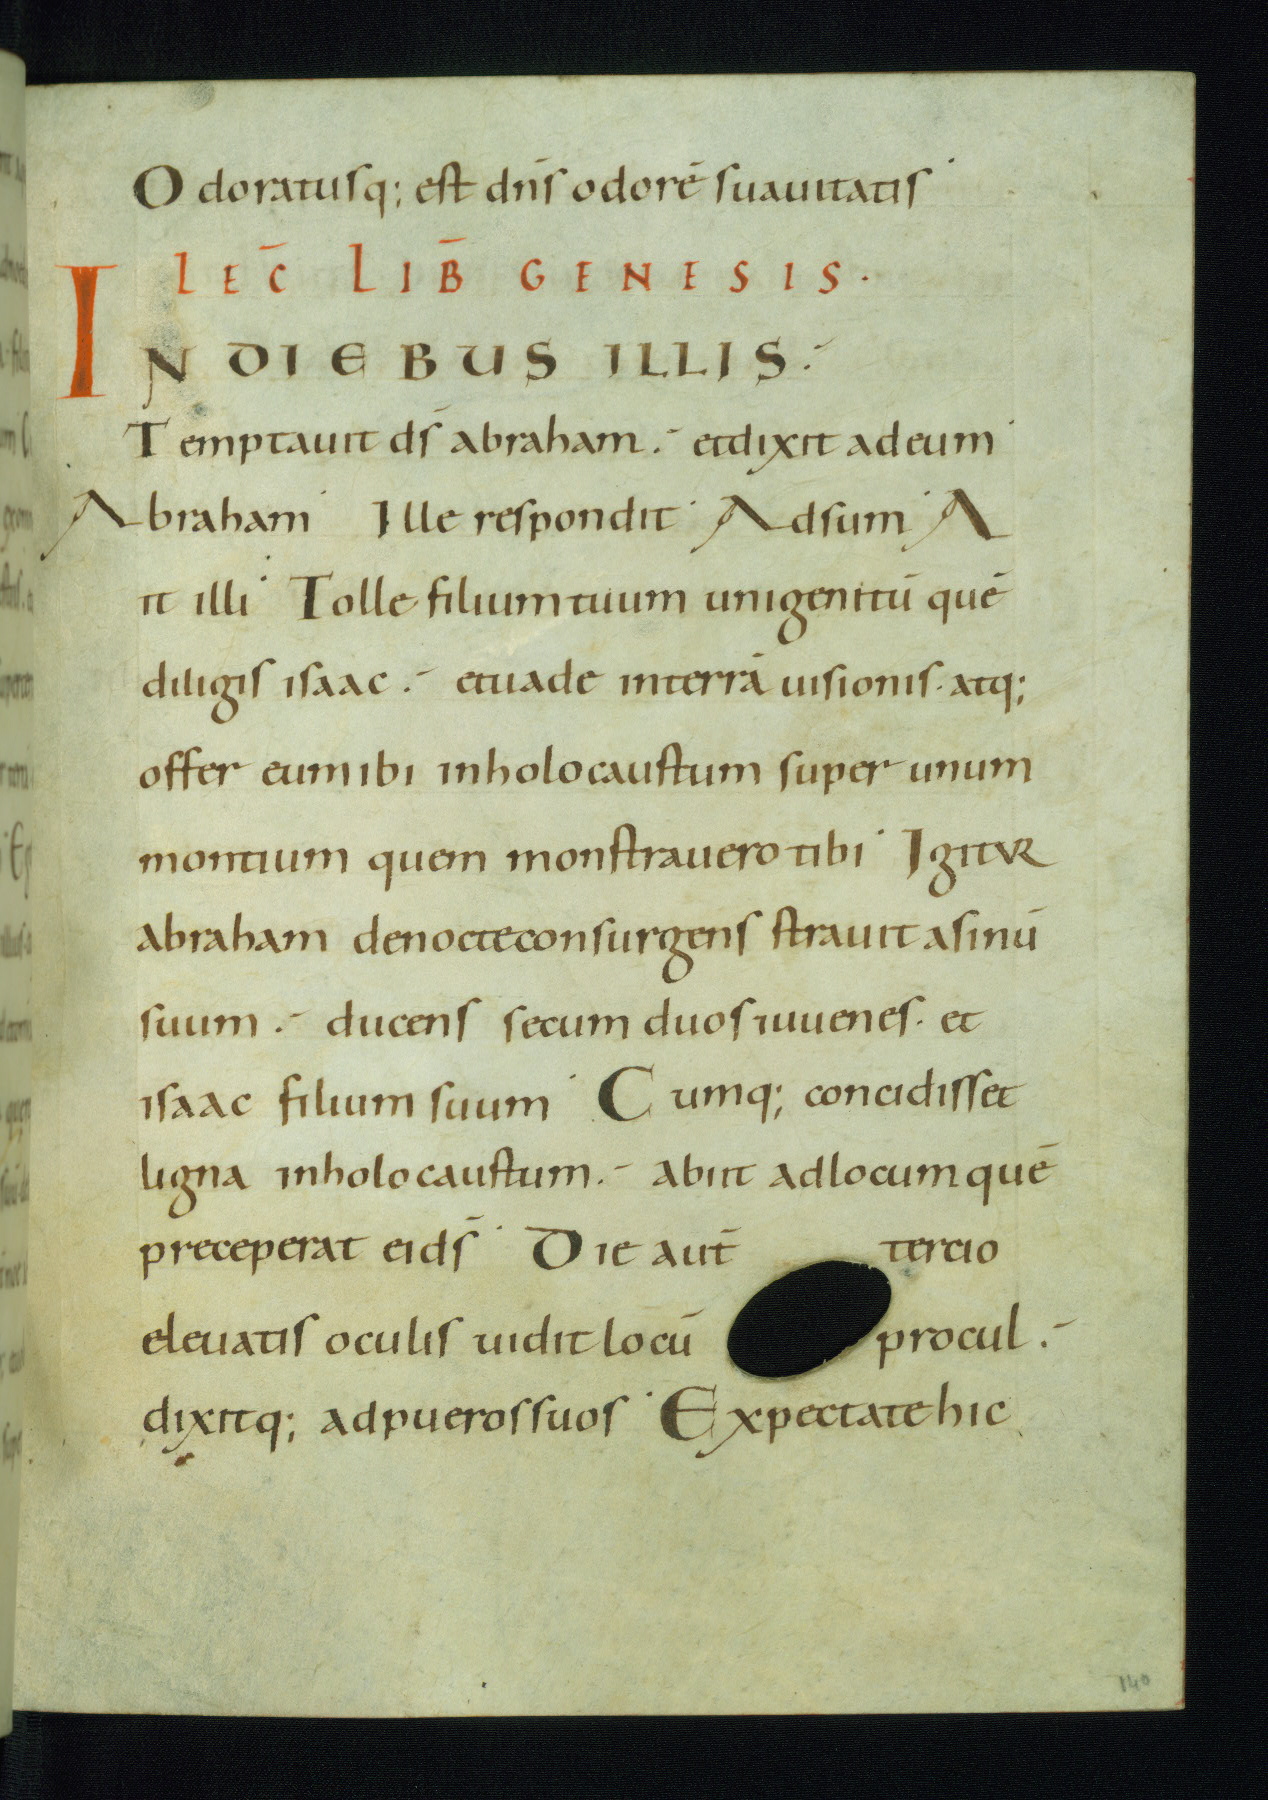 Odoratusq; est dn̄s odorē suauitatis
LEC̄ LIB̄ GENESIS.
IN DIEBUS ILLIS.
Temptauit ds̄ abraham. etdixit adeum
Abraham Ille respondit Adsum A
it illi Tolle filium tuum unigenitū quē
diligis isaac. etuade interrā uisionis. atq;
offer eum ibi inholocaustum super unum
montium quem monstrauero tibi Igitur
abraham denocteconsurgens strauit asinū
suum. ducens secum duos iuuenes. et
isaac filium suum Cumq; concidisset
ligna inholocaustum. abiit adlocum quē
preceperat ei ds̄ Die aut̄ tercio
eleuatis oculis uidit locū procul.
dixitq; adpueros suos Expectate hic
140